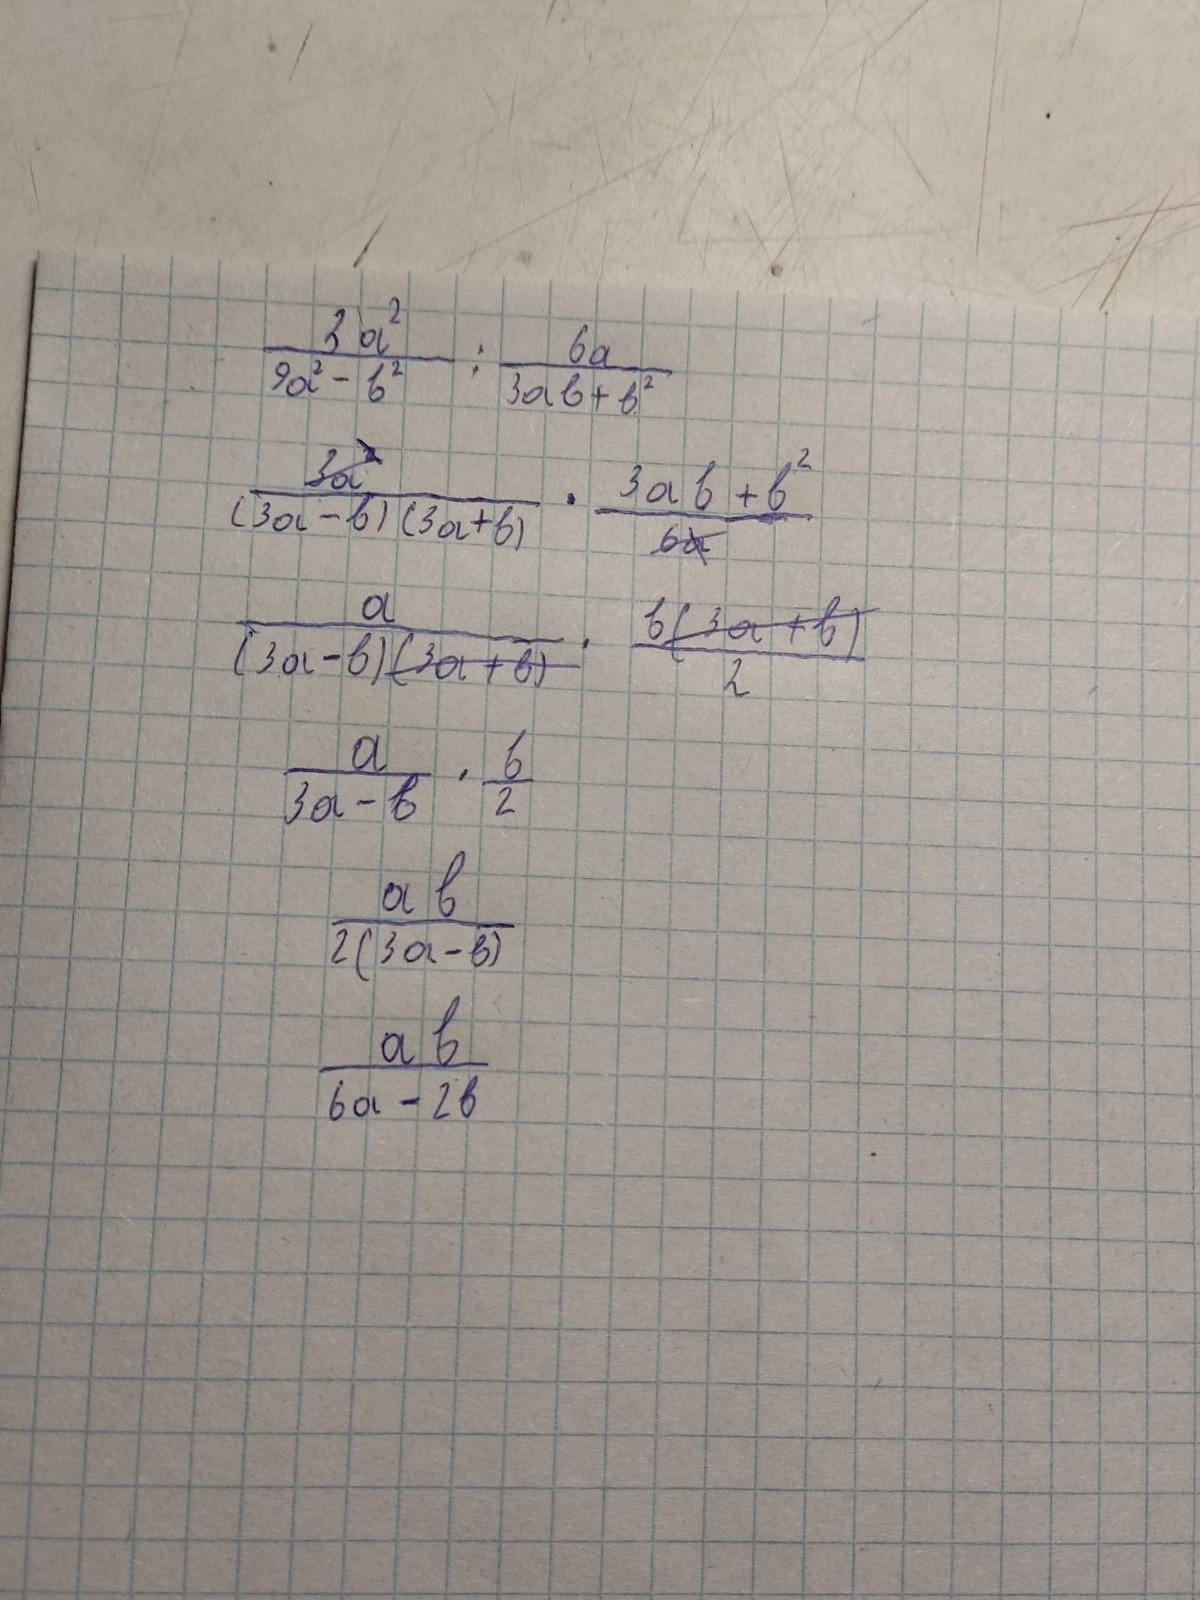 3a² / (9a² - b²) : 6a / (3ab + b²)
3a² / ((3a - b)(3a + b)) · (3ab + b²) / 6a
a / ((3a - b)(3a + b)) · b(3a + b) / 2
a / (3a - b) · b / 2
ab / (2(3a - b))
ab / (6a - 2b)